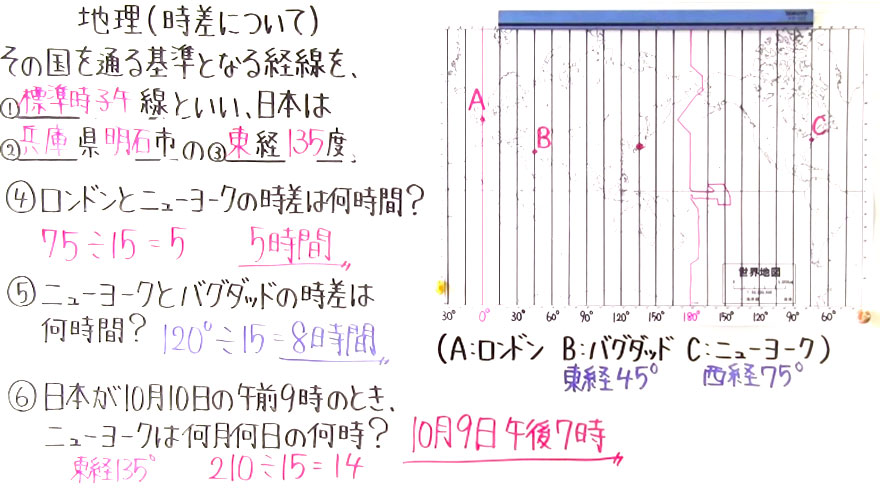 地理(時差について)
その国を通る基準となる経線を、
①標準時子午線といい、日本は
②兵庫県明石市の③東経135度。
④ロンドンとニューヨークの時差は何時間?
75÷15=5 5時間
⑤ニューヨークとバグダッドの時差は
何時間? 120°÷15=8時間
⑥日本が10月10日の午前9時のとき、
ニューヨークは何月何日の何時? 10月9日午後7時
東経135° 210÷15=14
A
B
C
世界地図
30° 0° 30° 60° 90° 120° 150° 180° 150° 120° 90° 60°
(A:ロンドン B:バグダッド C:ニューヨーク)
東経45° 西経75°